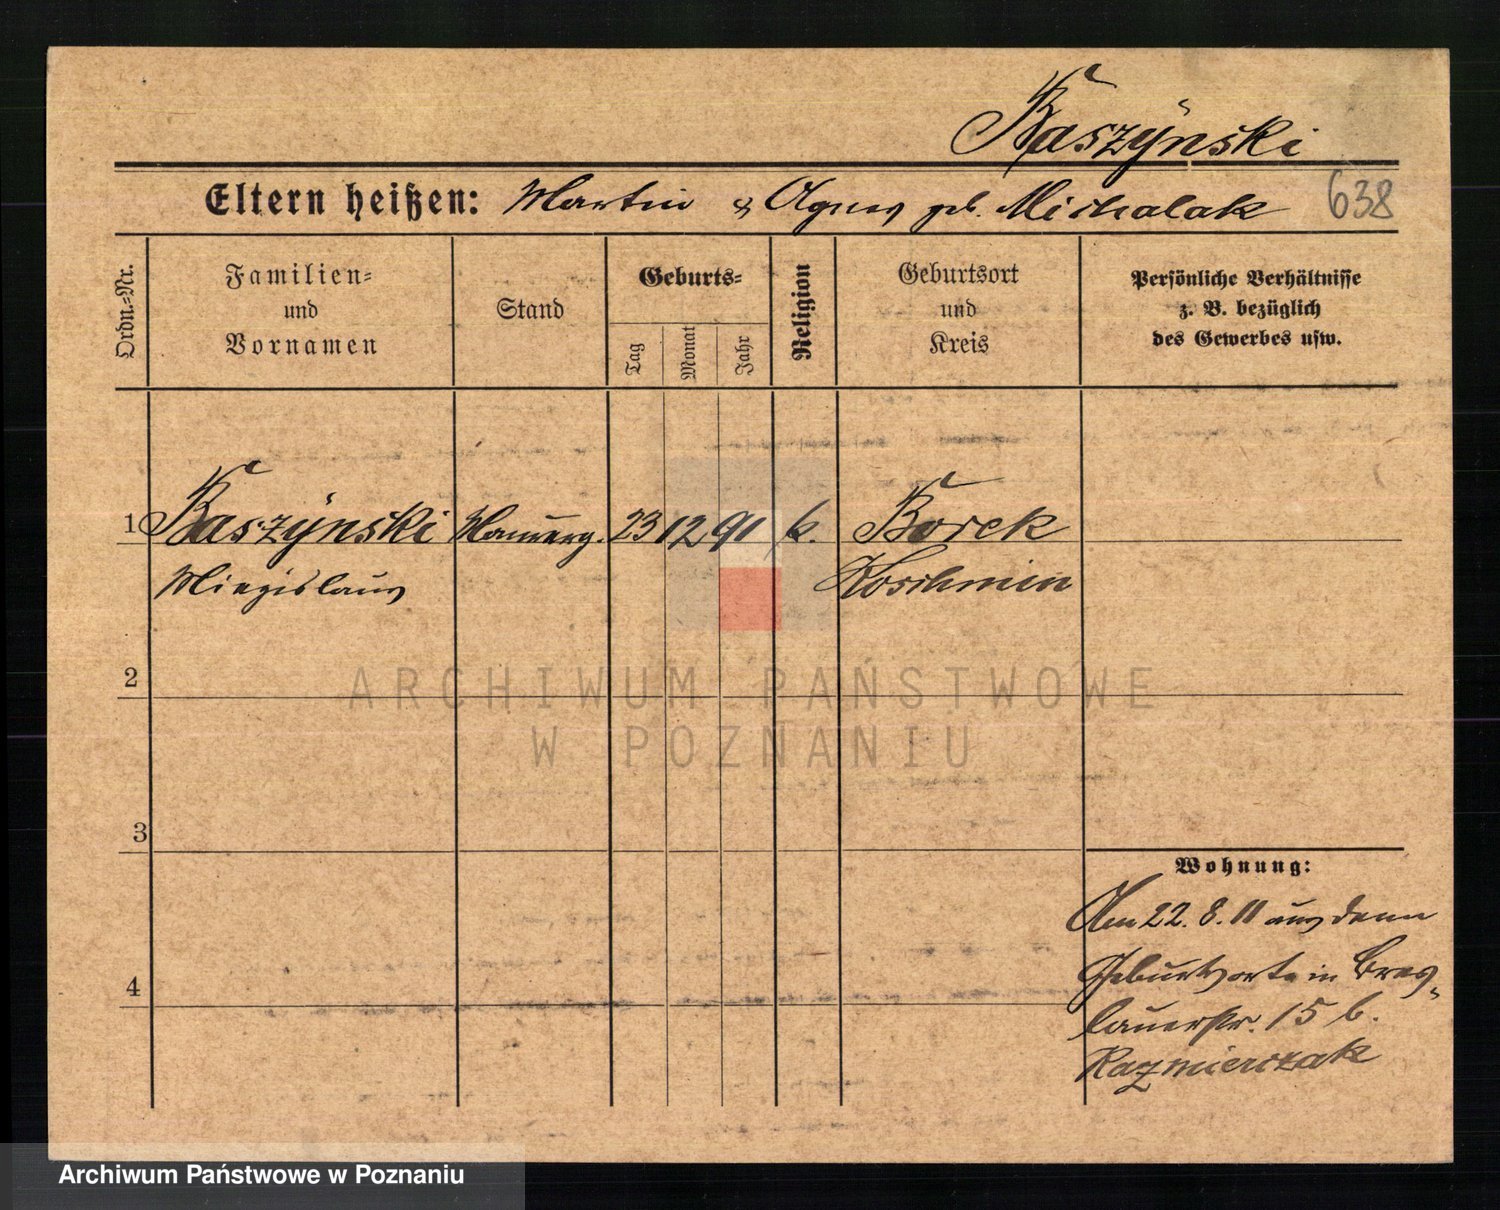 Kaszyński
Eltern heißen: Martin & Agnes geb. Michalak
638
Ordn.-Nr.
Familien-
und
Vornamen
Stand
Geburts-
Tag
Monat
Jahr
Religion
Geburtsort
und
Kreis
Persönliche Verhältnisse
z. B. bezüglich
des Gewerbes usw.
1 Kaszyński Maurerg. 23 12 91 k. Borek
Miezislaus Koschmin
2
ARCHIWUM PAŃSTWOWE
W POZNANIU
3
Wohnung:
Am 22. 8. 11 aus dem
4
Geburtsorte in Bres-
lauerstr. 15 b.
Kazmierczak
Archiwum Państwowe w Poznaniu